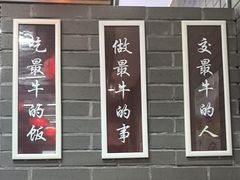 吃最牛的饭
做最牛的事
交最牛的人